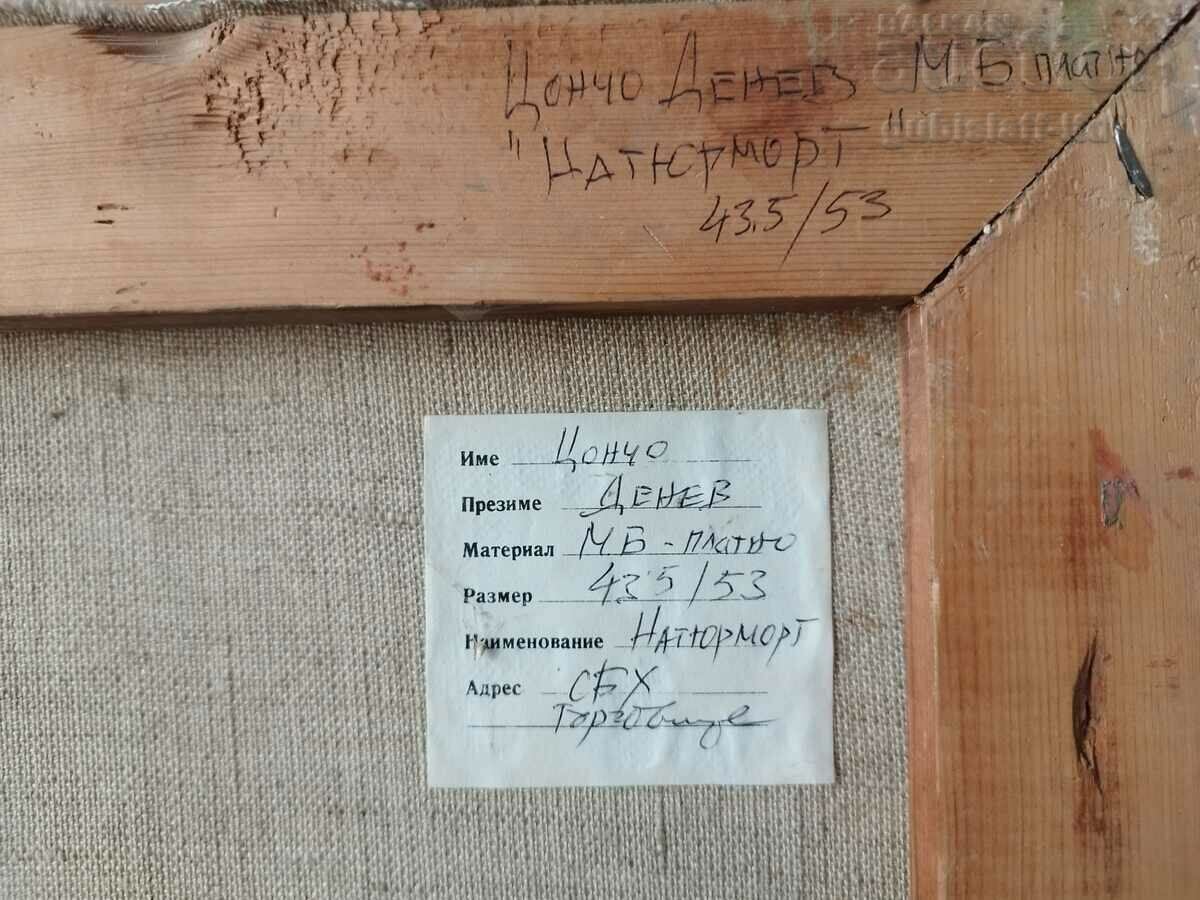 Цончо Денев М.Б. платно
"Натюрморт"
43.5/53
Име Цончо
Презиме Денев
Материал М Б - платно
Размер 43.5/53
Наименование Натюрморт
Адрес СБХ
Търговище